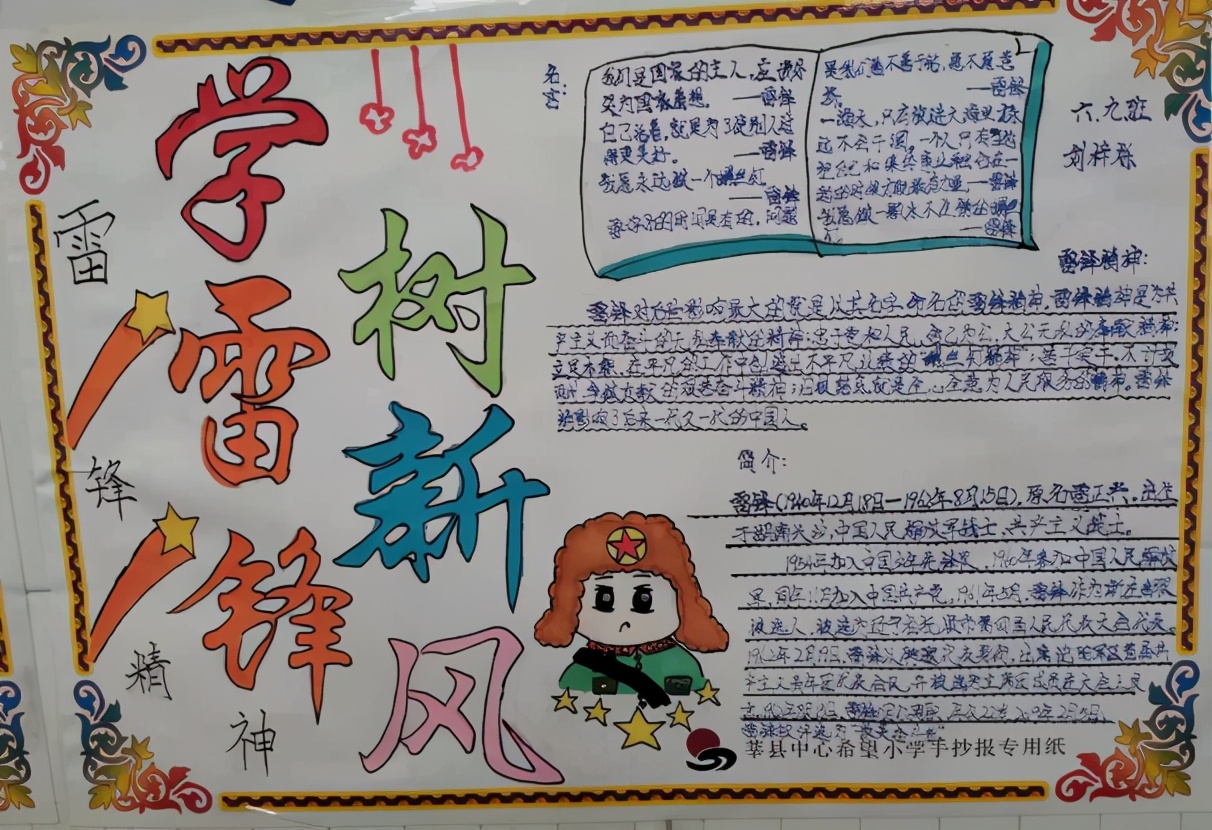 学雷锋
树新风
雷锋精神
名言:
我们是国家的主人,应该处
处为国家着想。——雷锋
自己活着,就是为了使别人过
得更美好。——雷锋
我愿永远做一个螺丝钉
——雷锋
一滴水,只有放进大海里才永
远不会干涸,一个人只有当他
把自己和集体事业融合在一
起的时候才能最有力量——雷锋
我愿做一颗永不生锈的螺
——雷锋
六.九班
雷锋精神:
雷锋对后世影响最大的就是以其名字命名的雷锋精神,雷锋精神是为共
产主义而奋斗的无私奉献的精神;忠于党和人民、舍己为公、大公无私的奉献精神;
立足本职、在平凡的工作中创造出不平凡业绩的“螺丝钉精神”;苦干实干、不计报
酬、争做贡献的艰苦奋斗精神;归根结底就是全心全意为人民服务的精神。雷锋
影响了后来一代又一代的中国人。
简介:
雷锋(1940年12月18日—1962年8月15日),原名雷正兴,出生
于湖南长沙,中国人民解放军战士、共产主义战士。
1954年加入中国少年先锋队,1960年参加中国人民解放
军,同年11月加入中国共产党。1961年5月,雷锋作为所在部队
候选人,被选为辽宁省抚顺市第四届人民代表大会代表。
1962年2月19日,雷锋以
莘县中心希望小学手抄报专用纸